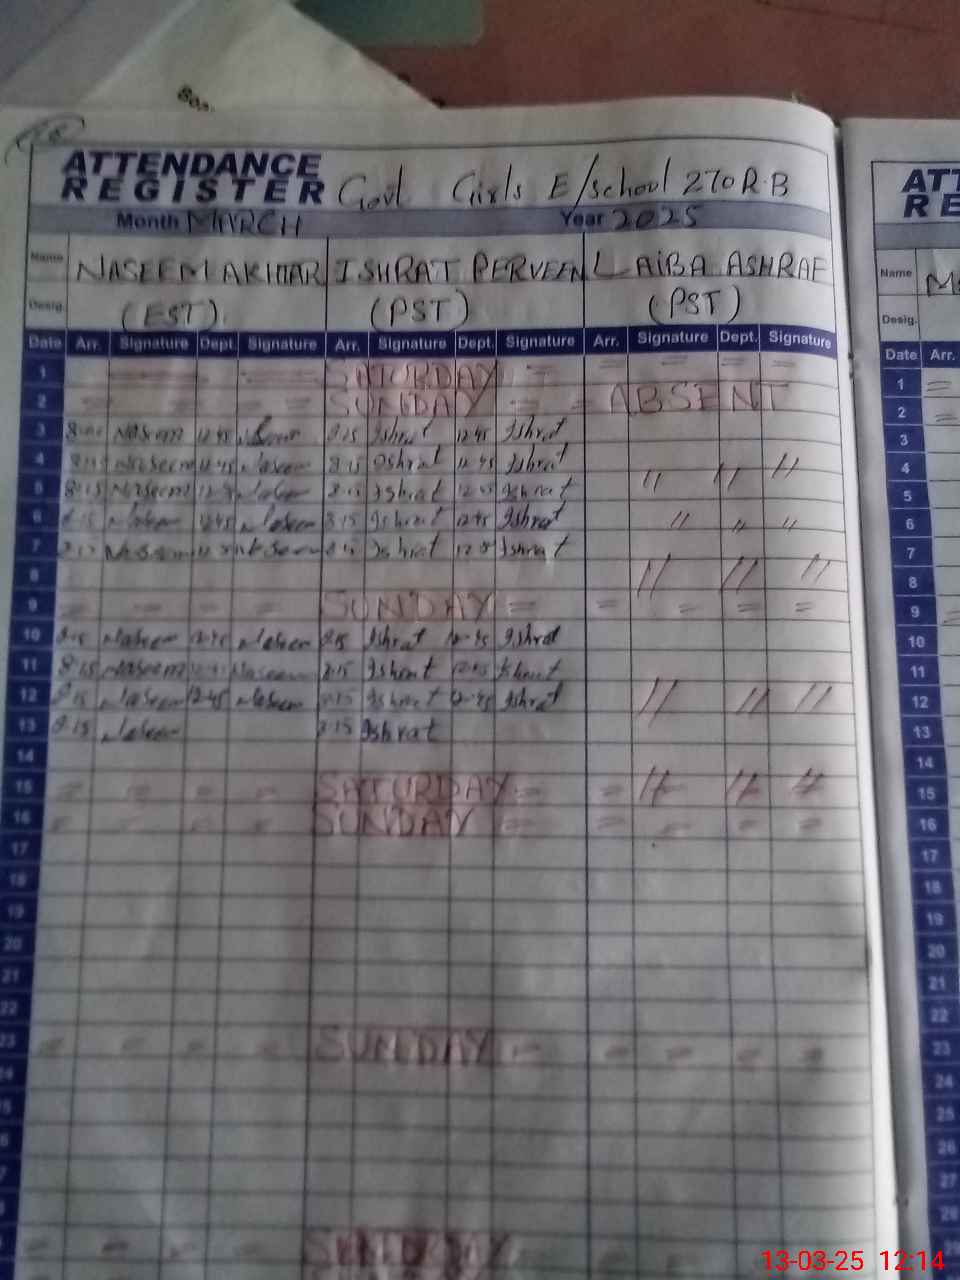 ATTENDANCE
REGISTER Govt Girls E/school 270 R.B
Month MARCH Year 2025
Name NASEEM AKHTAR ISHRAT PERVEEN LAIBA ASHRAF
Desig. (EST). (PST) (PST)
Date Arr. Signature Dept. Signature Arr. Signature Dept. Signature Arr. Signature Dept. Signature
1 = = SATURDAY = = = = =
2 = = = = SUNDAY = = ABSENT
3 Naseem 12:45 8:15 Ishrat 12:45 Ishrat
4 8:15 Naseem 12:45 Naseem 8:15 Ishrat 12:45 Ishrat
5 8:15 Naseem Naseem 8:15 Ishrat Ishrat " " "
6 8:15 Naseem 12:45 Naseem 8:15 Ishrat 12:45 Ishrat " " "
7 Naseem Naseem Ishrat Ishrat
8 " " "
9 = = = = SUNDAY = = = = =
10 8:15 Naseem 12:45 Naseem 8:15 Ishrat 12:45 Ishrat
11 8:15 Naseem Naseem 8:15 Ishrat 12:45 Ishrat
12 8:15 Naseem 12:45 Naseem 8:15 Ishrat 12:45 Ishrat " " "
13 8:15 Naseem 8:15 Ishrat
14
15 = = = = SATURDAY = =
16 = = = = SUNDAY = = = = =
17
18
19
20
21
22
23 = = = = SUNDAY = = = = =
ATT
RE
Name
Desig.
Date Arr.
1 =
2 =
3
4
5
6
7
8
9
10
11
12
13
14
15
16
17
18
19
20
21
22
23
24
25
26
27
28
13-03-25 12:14